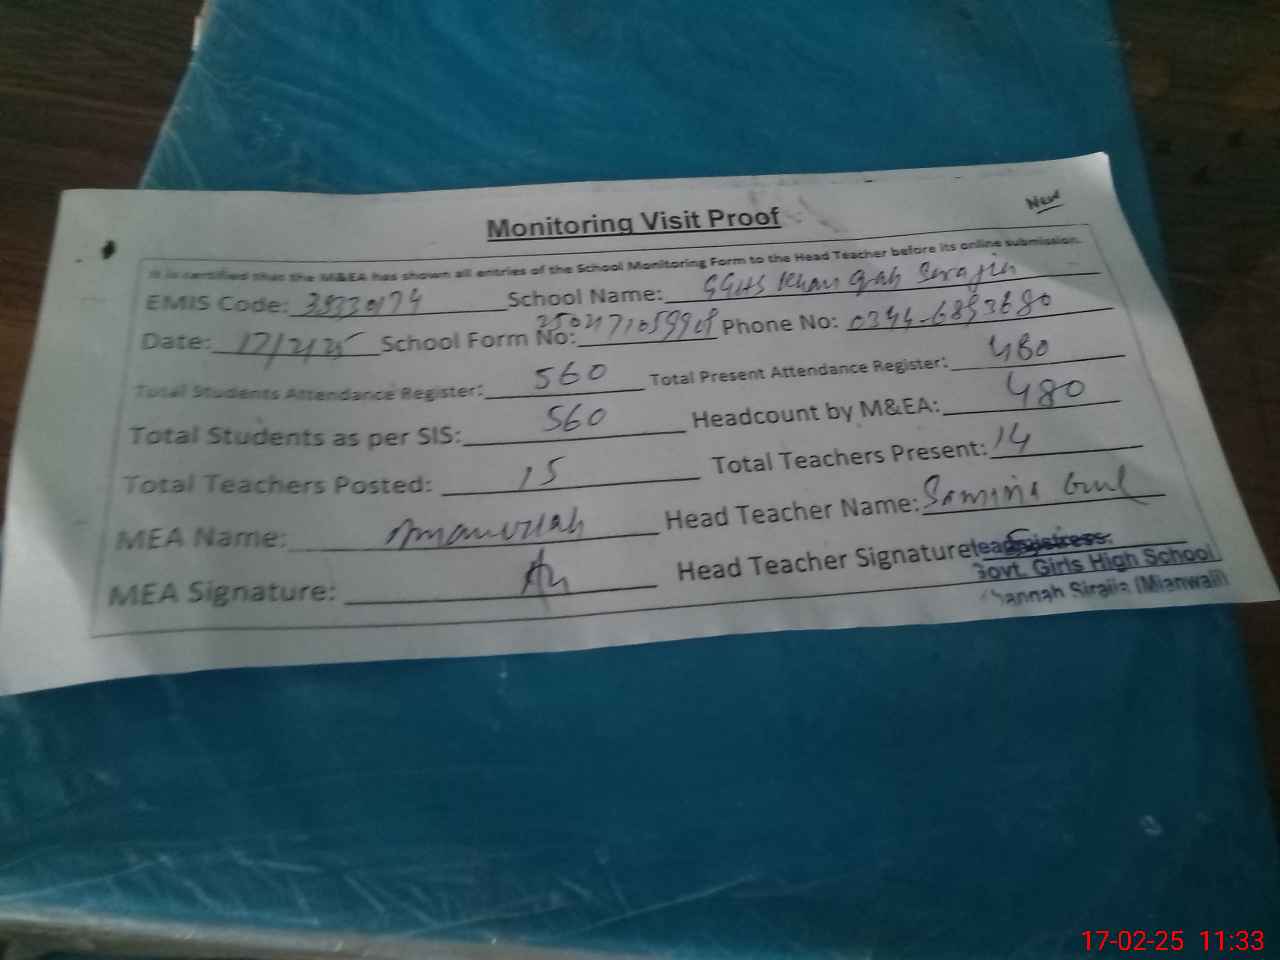 New
Monitoring Visit Proof
It is certified that the M&EA has shown all entries of the School Monitoring Form to the Head Teacher before its online submission.
EMIS Code: 38330174 School Name: GGHS Khan Qah Serajia
Date: 17/2/25 School Form No: Phone No: 0344-6893680
Total Students Attendance Register: 560 Total Present Attendance Register: 480
Total Students as per SIS: 560 Headcount by M&EA: 480
Total Teachers Posted: 15 Total Teachers Present: 14
MEA Name: Amanullah Head Teacher Name: Samina Gul
MEA Signature: Head Teacher Signature
Govt. Girls High School
Sirajia (Mianwali)
17-02-25 11:33